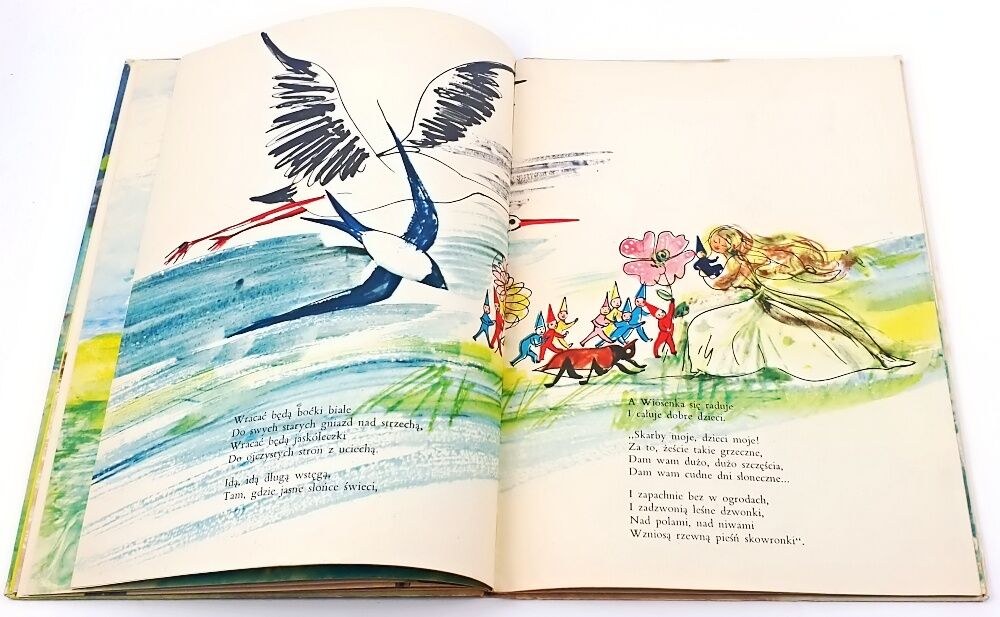 Wracać będą boćki białe
Do swych starych gniazd nad strzechą,
Wracać będą jaskółeczki
Do ojczystych stron z uciechą.
Idą, idą długą wstęgą,
Tam, gdzie jasne słońce świeci,
A Wiosenka się raduje
I całuje dobre dzieci.
„Skarby moje, dzieci moje!
Za to, żeście takie grzeczne,
Dam wam dużo, dużo szczęścia,
Dam wam cudne dni słoneczne...
I zapachnie bez w ogrodach,
I zadzwonią leśne dzwonki,
Nad polami, nad niwami
Wzniosą rzewną pieśń skowronki“.